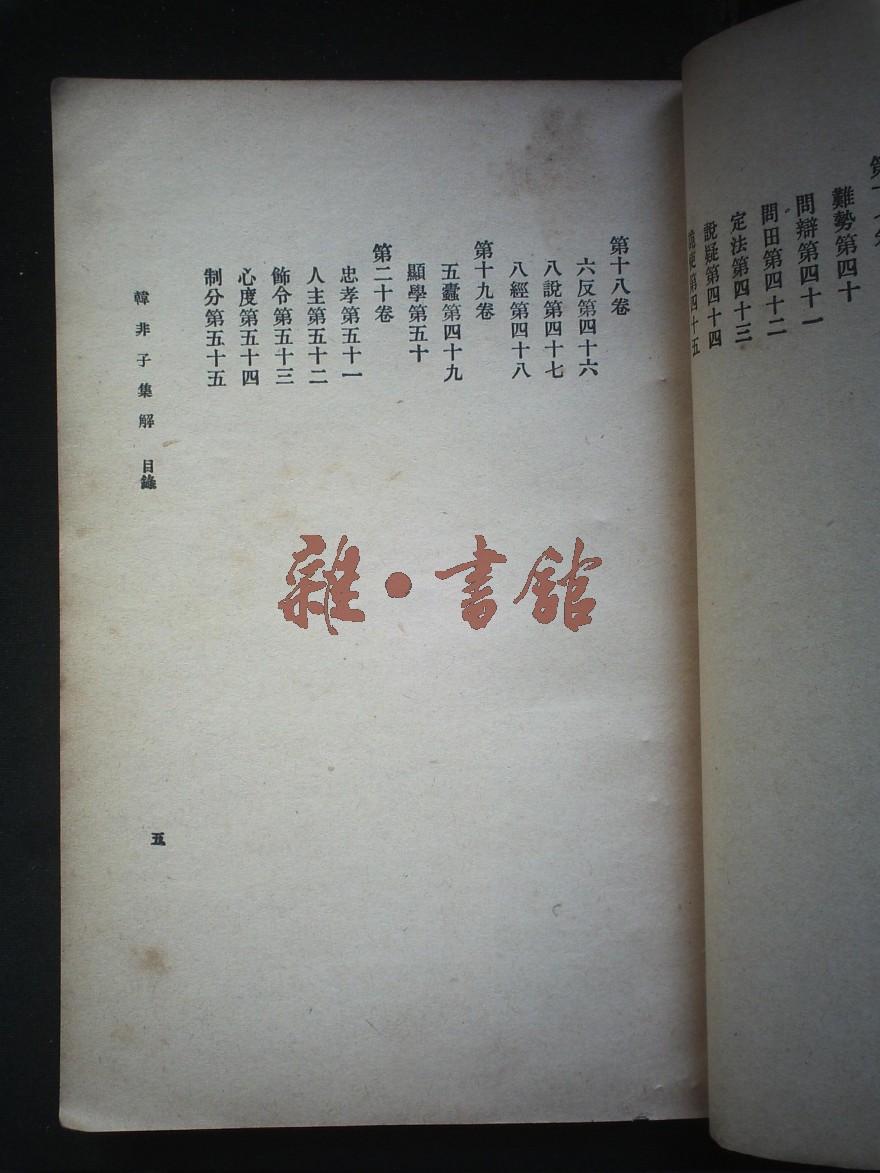 難勢第四十
問辯第四十一
問田第四十二
定法第四十三
說疑第四十四
第四十五
第十八卷
六反第四十六
八說第四十七
八經第四十八
第十九卷
五蠹第四十九
顯學第五十
第二十卷
忠孝第五十一
人主第五十二
飾令第五十三
心度第五十四
制分第五十五
韓非子集解 目錄
五
雜·書館